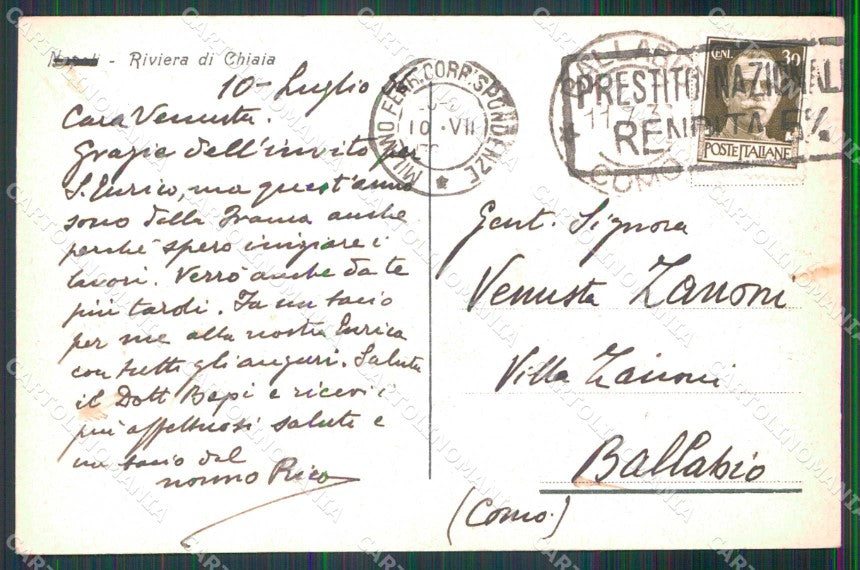 Napoli - Riviera di Chiaia
10 - Luglio
Cara Venusta.
Grazie dell'invito per
S. Enrico, ma quest'anno
sono dalla Franca anche
perchè spero iniziare i
lavori. Verrò anche da te
più tardi. Fa un bacio
per me alla nostra Enrica
con tutti gli auguri. Saluta
il Dott Bepi e ricevi i
più affettuosi saluti e
un bacio dal
nonno Rico
MILANO FERR. CORRISPONDENZE
10 · VII
BALLABIO
11.7.3
COMO
PRESTITO NAZIONALE
RENDITA 5%
CENT. 30
POSTE ITALIANE
Gent. Signora
Venusta Zanoni
Villa Zanoni
Ballabio
(Como.)
CARTOLINOMANIA